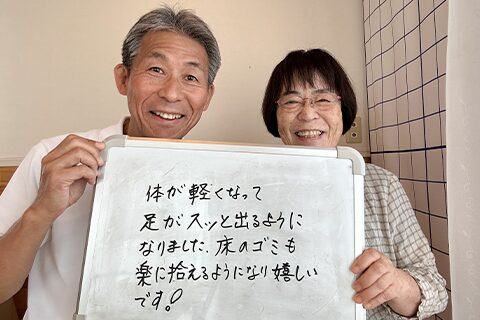 体が軽くなって
足がスッと出るように
なりました、床のゴミも
楽に拾えるようになり嬉しい
です!